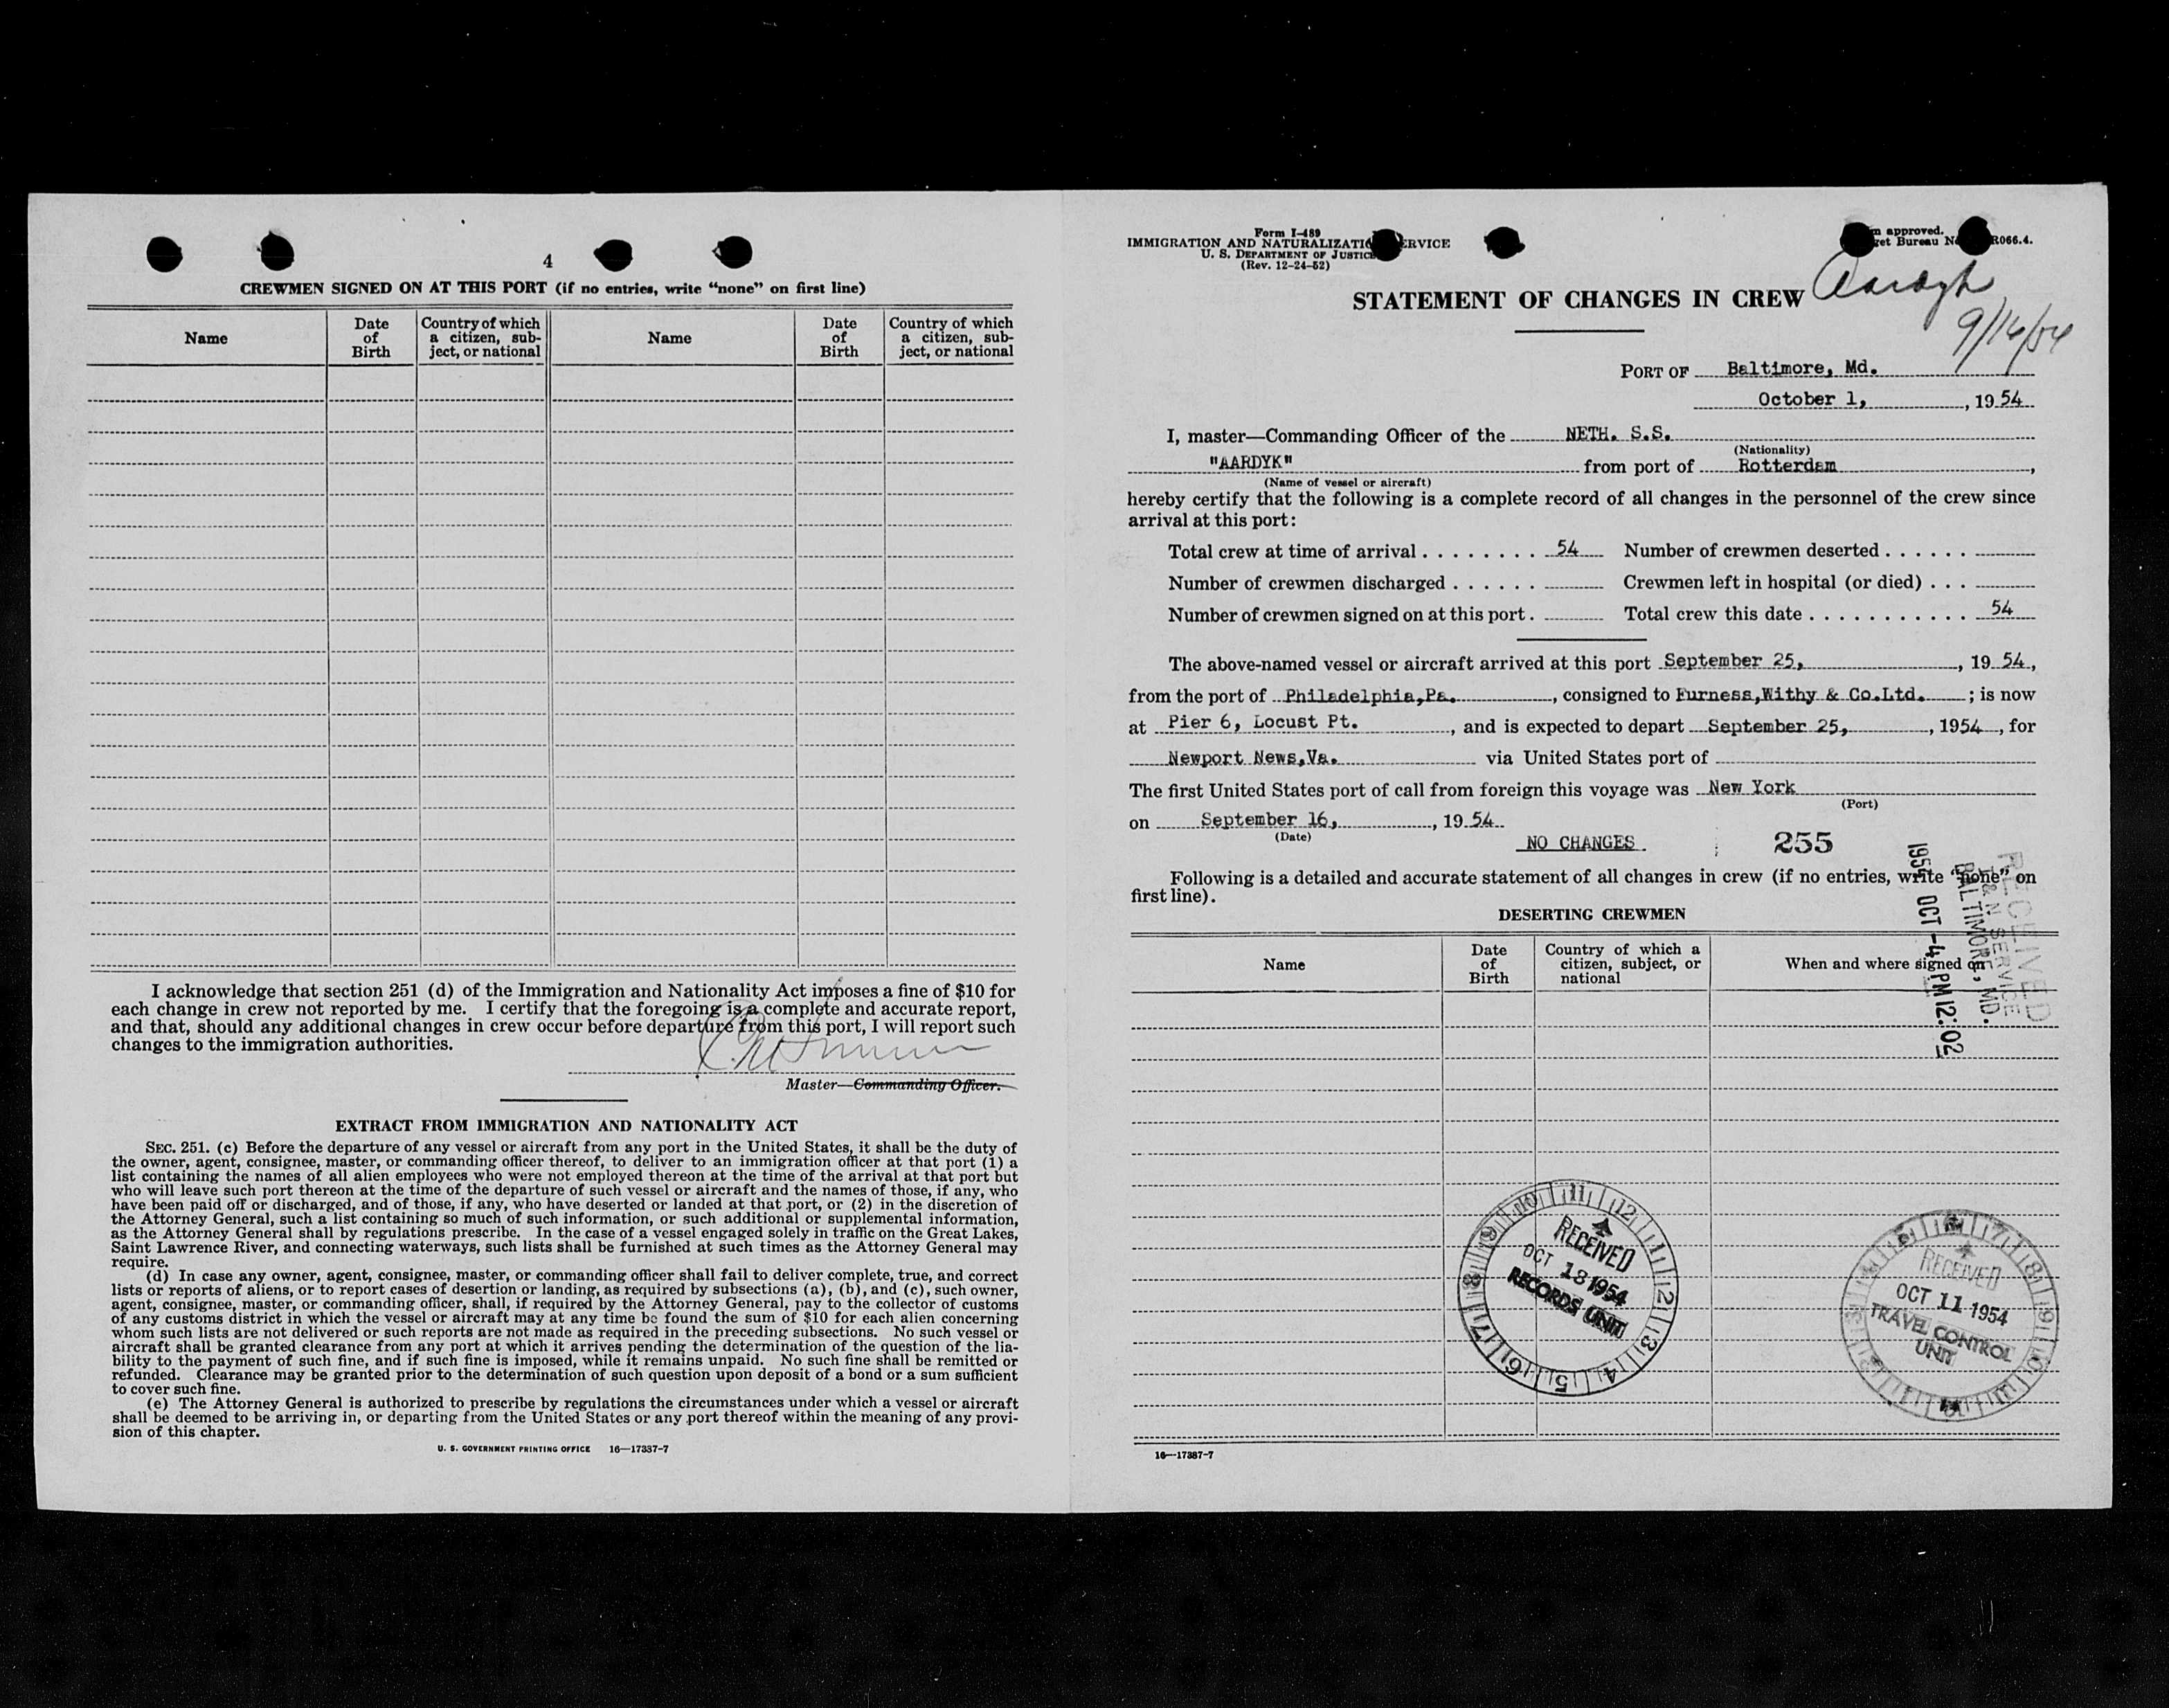 4
CREWMEN SIGNED ON AT THIS PORT (if no entries, write “none” on first line)
Name
Date of Birth
Country of which a citizen, sub-ject, or national
Name
Date of Birth
Country of which a citizen, sub-ject, or national
I acknowledge that section 251 (d) of the Immigration and Nationality Act imposes a fine of $10 for
each change in crew not reported by me. I certify that the foregoing is a complete and accurate report,
and that, should any additional changes in crew occur before departure from this port, I will report such
changes to the immigration authorities.
Master—Commanding Officer.
EXTRACT FROM IMMIGRATION AND NATIONALITY ACT
SEC. 251. (c) Before the departure of any vessel or aircraft from any port in the United States, it shall be the duty of
the owner, agent, consignee, master, or commanding officer thereof, to deliver to an immigration officer at that port (1) a
list containing the names of all alien employees who were not employed thereon at the time of the arrival at that port but
who will leave such port thereon at the time of the departure of such vessel or aircraft and the names of those, if any, who
have been paid off or discharged, and of those, if any, who have deserted or landed at that port, or (2) in the discretion of
the Attorney General, such a list containing so much of such information, or such additional or supplemental information,
as the Attorney General shall by regulations prescribe. In the case of a vessel engaged solely in traffic on the Great Lakes,
Saint Lawrence River, and connecting waterways, such lists shall be furnished at such times as the Attorney General may
require.
(d) In case any owner, agent, consignee, master, or commanding officer shall fail to deliver complete, true, and correct
lists or reports of aliens, or to report cases of desertion or landing, as required by subsections (a), (b), and (c), such owner,
agent, consignee, master, or commanding officer, shall, if required by the Attorney General, pay to the collector of customs
of any customs district in which the vessel or aircraft may at any time be found the sum of $10 for each alien concerning
whom such lists are not delivered or such reports are not made as required in the preceding subsections. No such vessel or
aircraft shall be granted clearance from any port at which it arrives pending the determination of the question of the lia-
bility to the payment of such fine, and if such fine is imposed, while it remains unpaid. No such fine shall be remitted or
refunded. Clearance may be granted prior to the determination of such question upon deposit of a bond or a sum sufficient
to cover such fine.
(e) The Attorney General is authorized to prescribe by regulations the circumstances under which a vessel or aircraft
shall be deemed to be arriving in, or departing from the United States or any port thereof within the meaning of any provi-
sion of this chapter.
U. S. GOVERNMENT PRINTING OFFICE 16—17387-7
Form I-489
IMMIGRATION AND NATURALIZATIO ERVICE
U. S. DEPARTMENT OF JUSTICE
(Rev. 12-24-52)
m approved.
get Bureau No R066.4.
STATEMENT OF CHANGES IN CREW
9/16/54
PORT OF Baltimore, Md.
October 1, , 19 54
I, master—Commanding Officer of the NETH. S.S.
(Nationality)
"AARDYK" from port of Rotterdam ,
(Name of vessel or aircraft)
hereby certify that the following is a complete record of all changes in the personnel of the crew since
arrival at this port:
Total crew at time of arrival . . . . . . . . 54 Number of crewmen deserted . . . . . .
Number of crewmen discharged . . . . . . Crewmen left in hospital (or died) . . .
Number of crewmen signed on at this port . Total crew this date . . . . . . . . . . . 54
The above-named vessel or aircraft arrived at this port September 25, , 19 54,
from the port of Philadelphia,Pa. , consigned to Furness,Withy & Co.Ltd. ; is now
at Pier 6, Locust Pt. , and is expected to depart September 25, , 1954 , for
Newport News,Va. via United States port of
The first United States port of call from foreign this voyage was New York
(Port)
on September 16, , 19 54
(Date)
NO CHANGES
255
Following is a detailed and accurate statement of all changes in crew (if no entries, write “none” on
first line).
RECEIVED
I & N. SERVICE
BALTIMORE, MD.
1954 OCT -4 PM 12:02
DESERTING CREWMEN
Name
Date of Birth
Country of which a citizen, subject, or national
When and where signed on
RECEIVED
OCT 18 1954
RECORDS UNIT
RECEIVED
OCT 11 1954
TRAVEL CONTROL
UNIT
16—17387-7